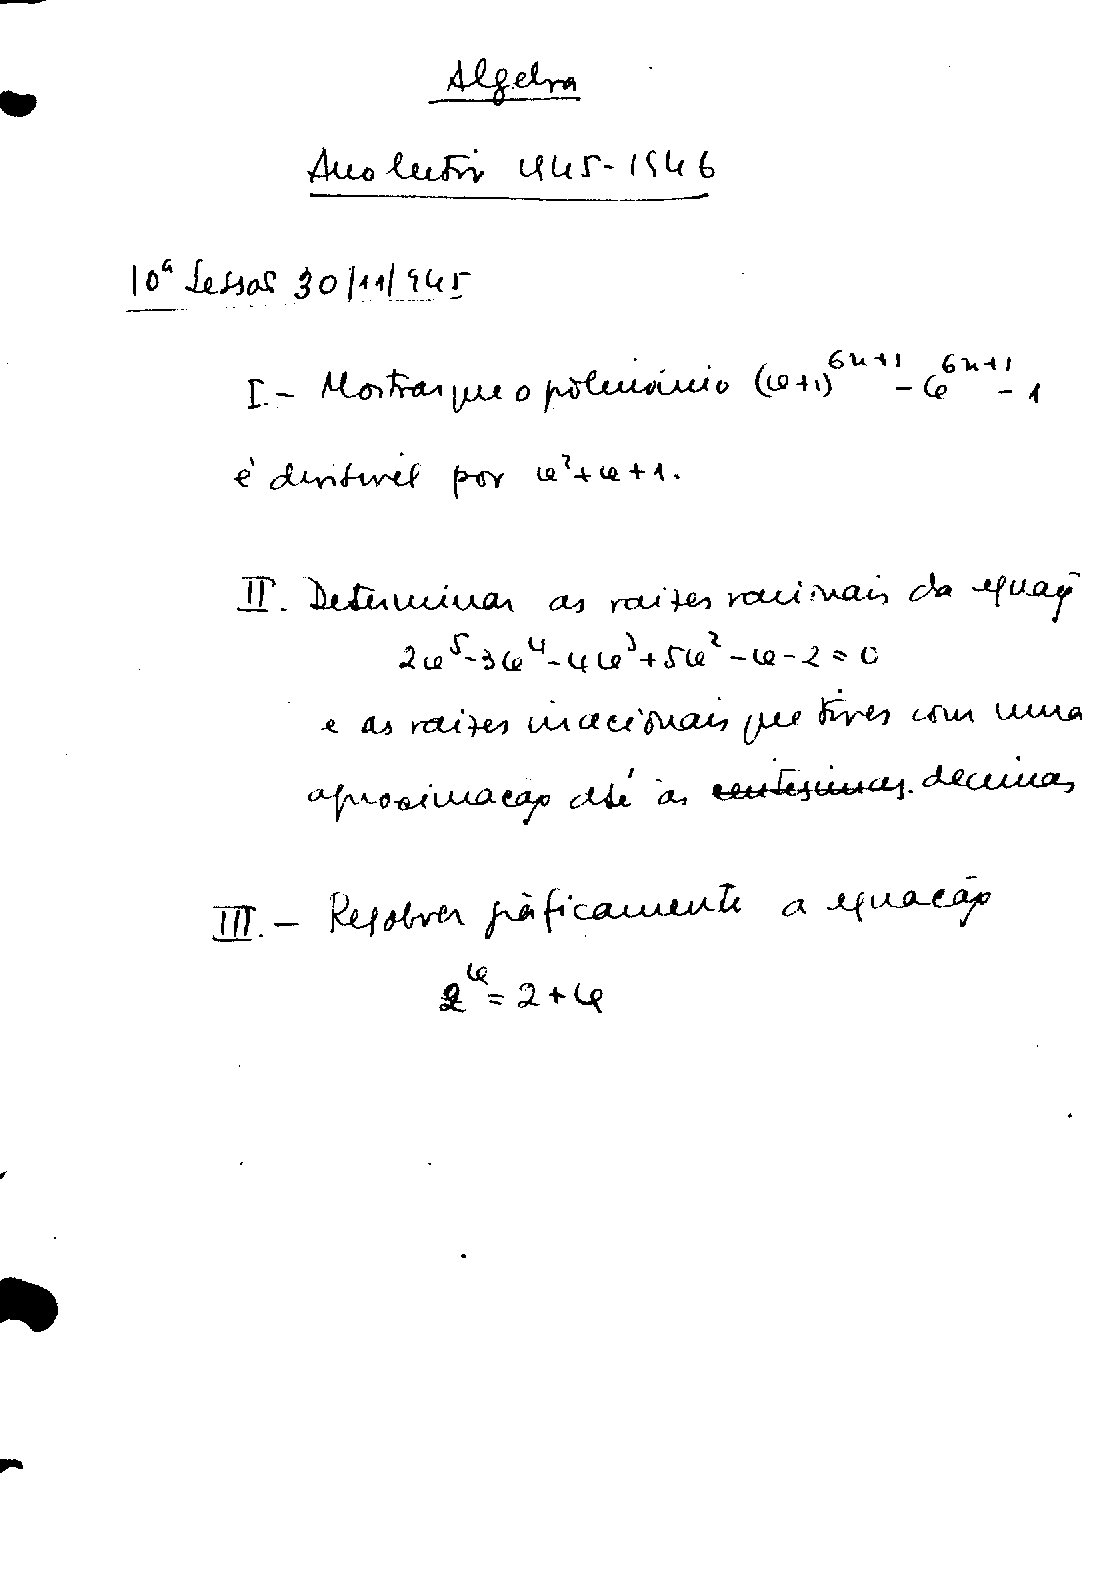 Algebra
Ano lectivo 1945-1946
10ª Lessão 30/11/945
I.- Mostrar que o polinómio (x+1)^{6n+1} - x^{6n+1} - 1
é divisivel por x²+x+1.
II. Determinar as raizes racionais da equação
2x⁵-3x⁴-4x³+5x²-x-2=0
e as raizes irracionais que tiver com uma
aproximação até às centesimas. decimas
III.- Resolver gràficamente a equação
2^x = 2+x